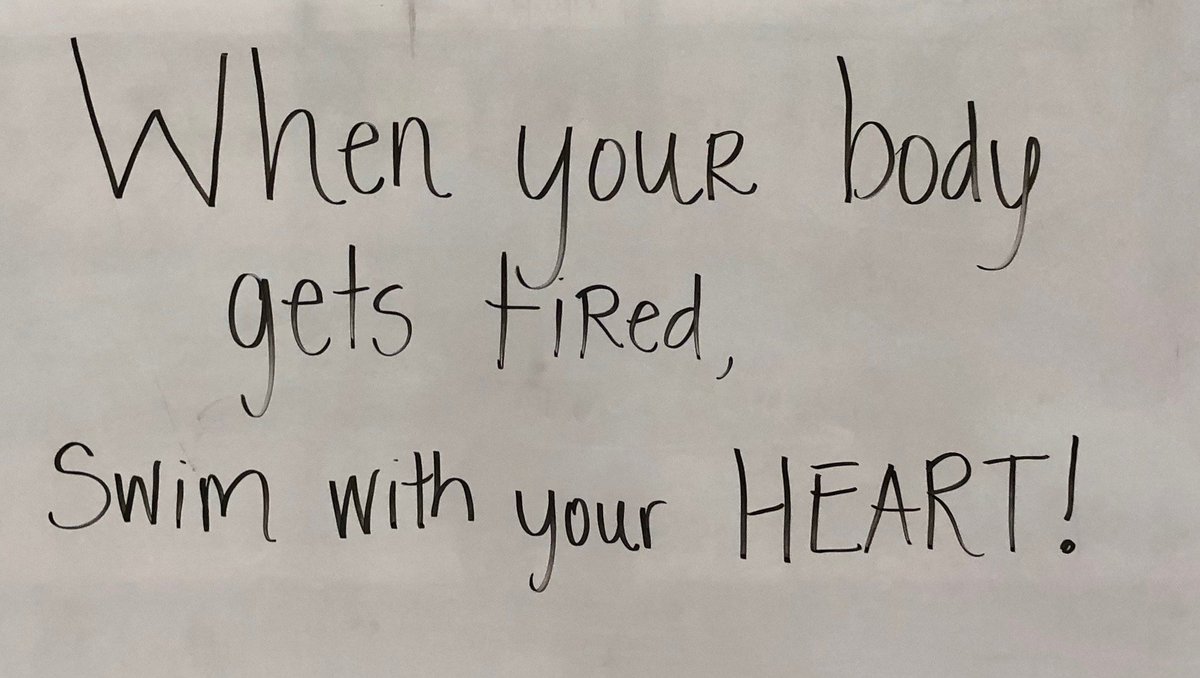 When your body
gets tired,
Swim with your HEART!